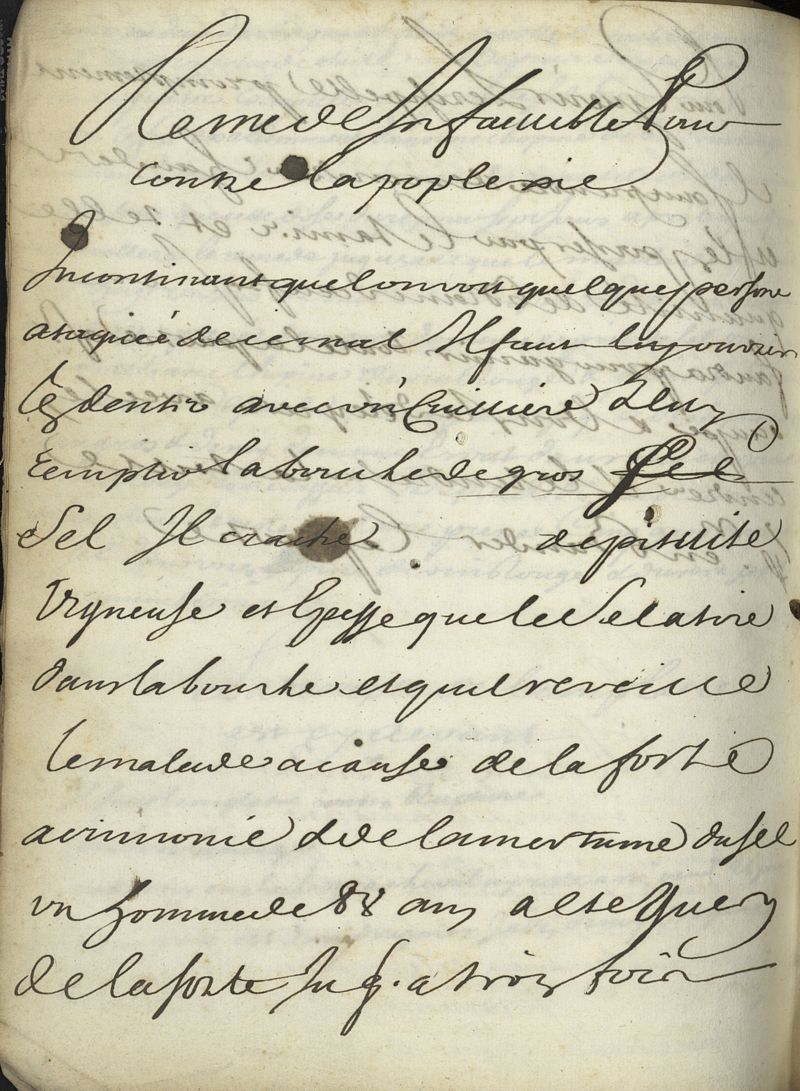 Remede Infaillible Pour
contre lapoplexie
Incontinant que lon voit quelque persone
ataquée de ce mal Il faut luy ouvrir
les dents avec un Cuilliere & luy
remplir la bouche de gros
Sel Il crache de pituite
Vigneuse et Epesse que le Sel atire
dans la bouche et quil reveille
le malade a cause de la forte
acrimonie & de lamertume du sel
un homme de 88 ans a este Guery
de la forte a trois fois